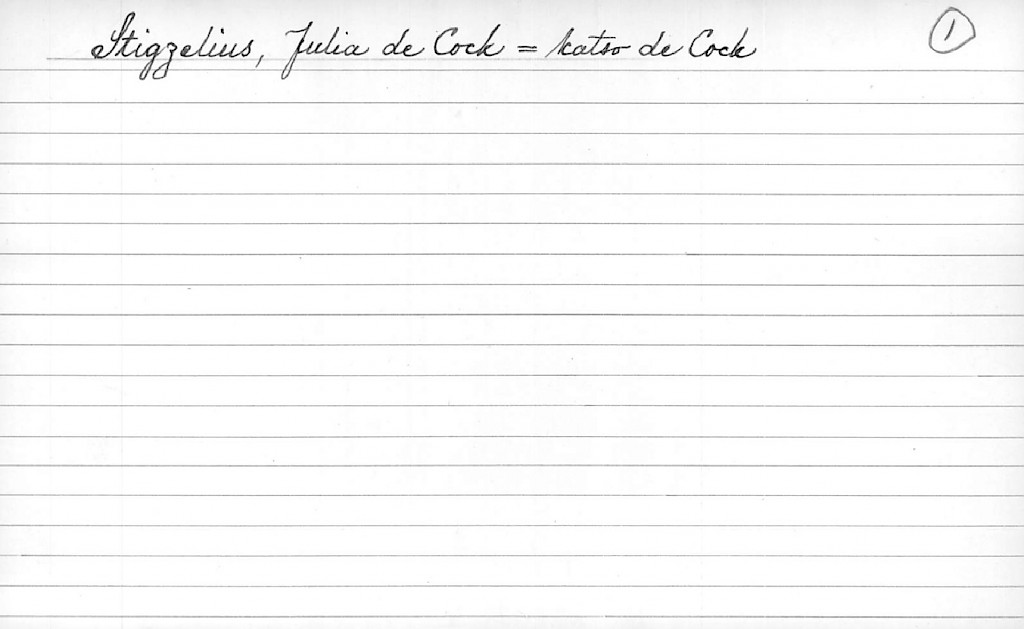 Stigzelius, Julia de Cock = katso de Cock 1